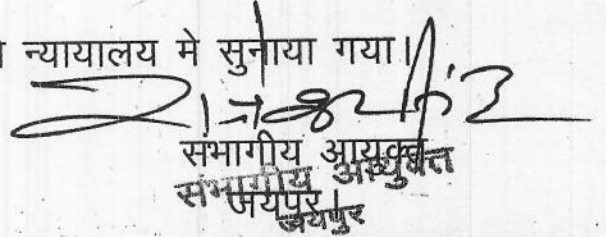 न्यायालय मे सुनाया गया।
संभागीय आयुक्त
जयपुर
संभागीय आयुक्त
जयपुर